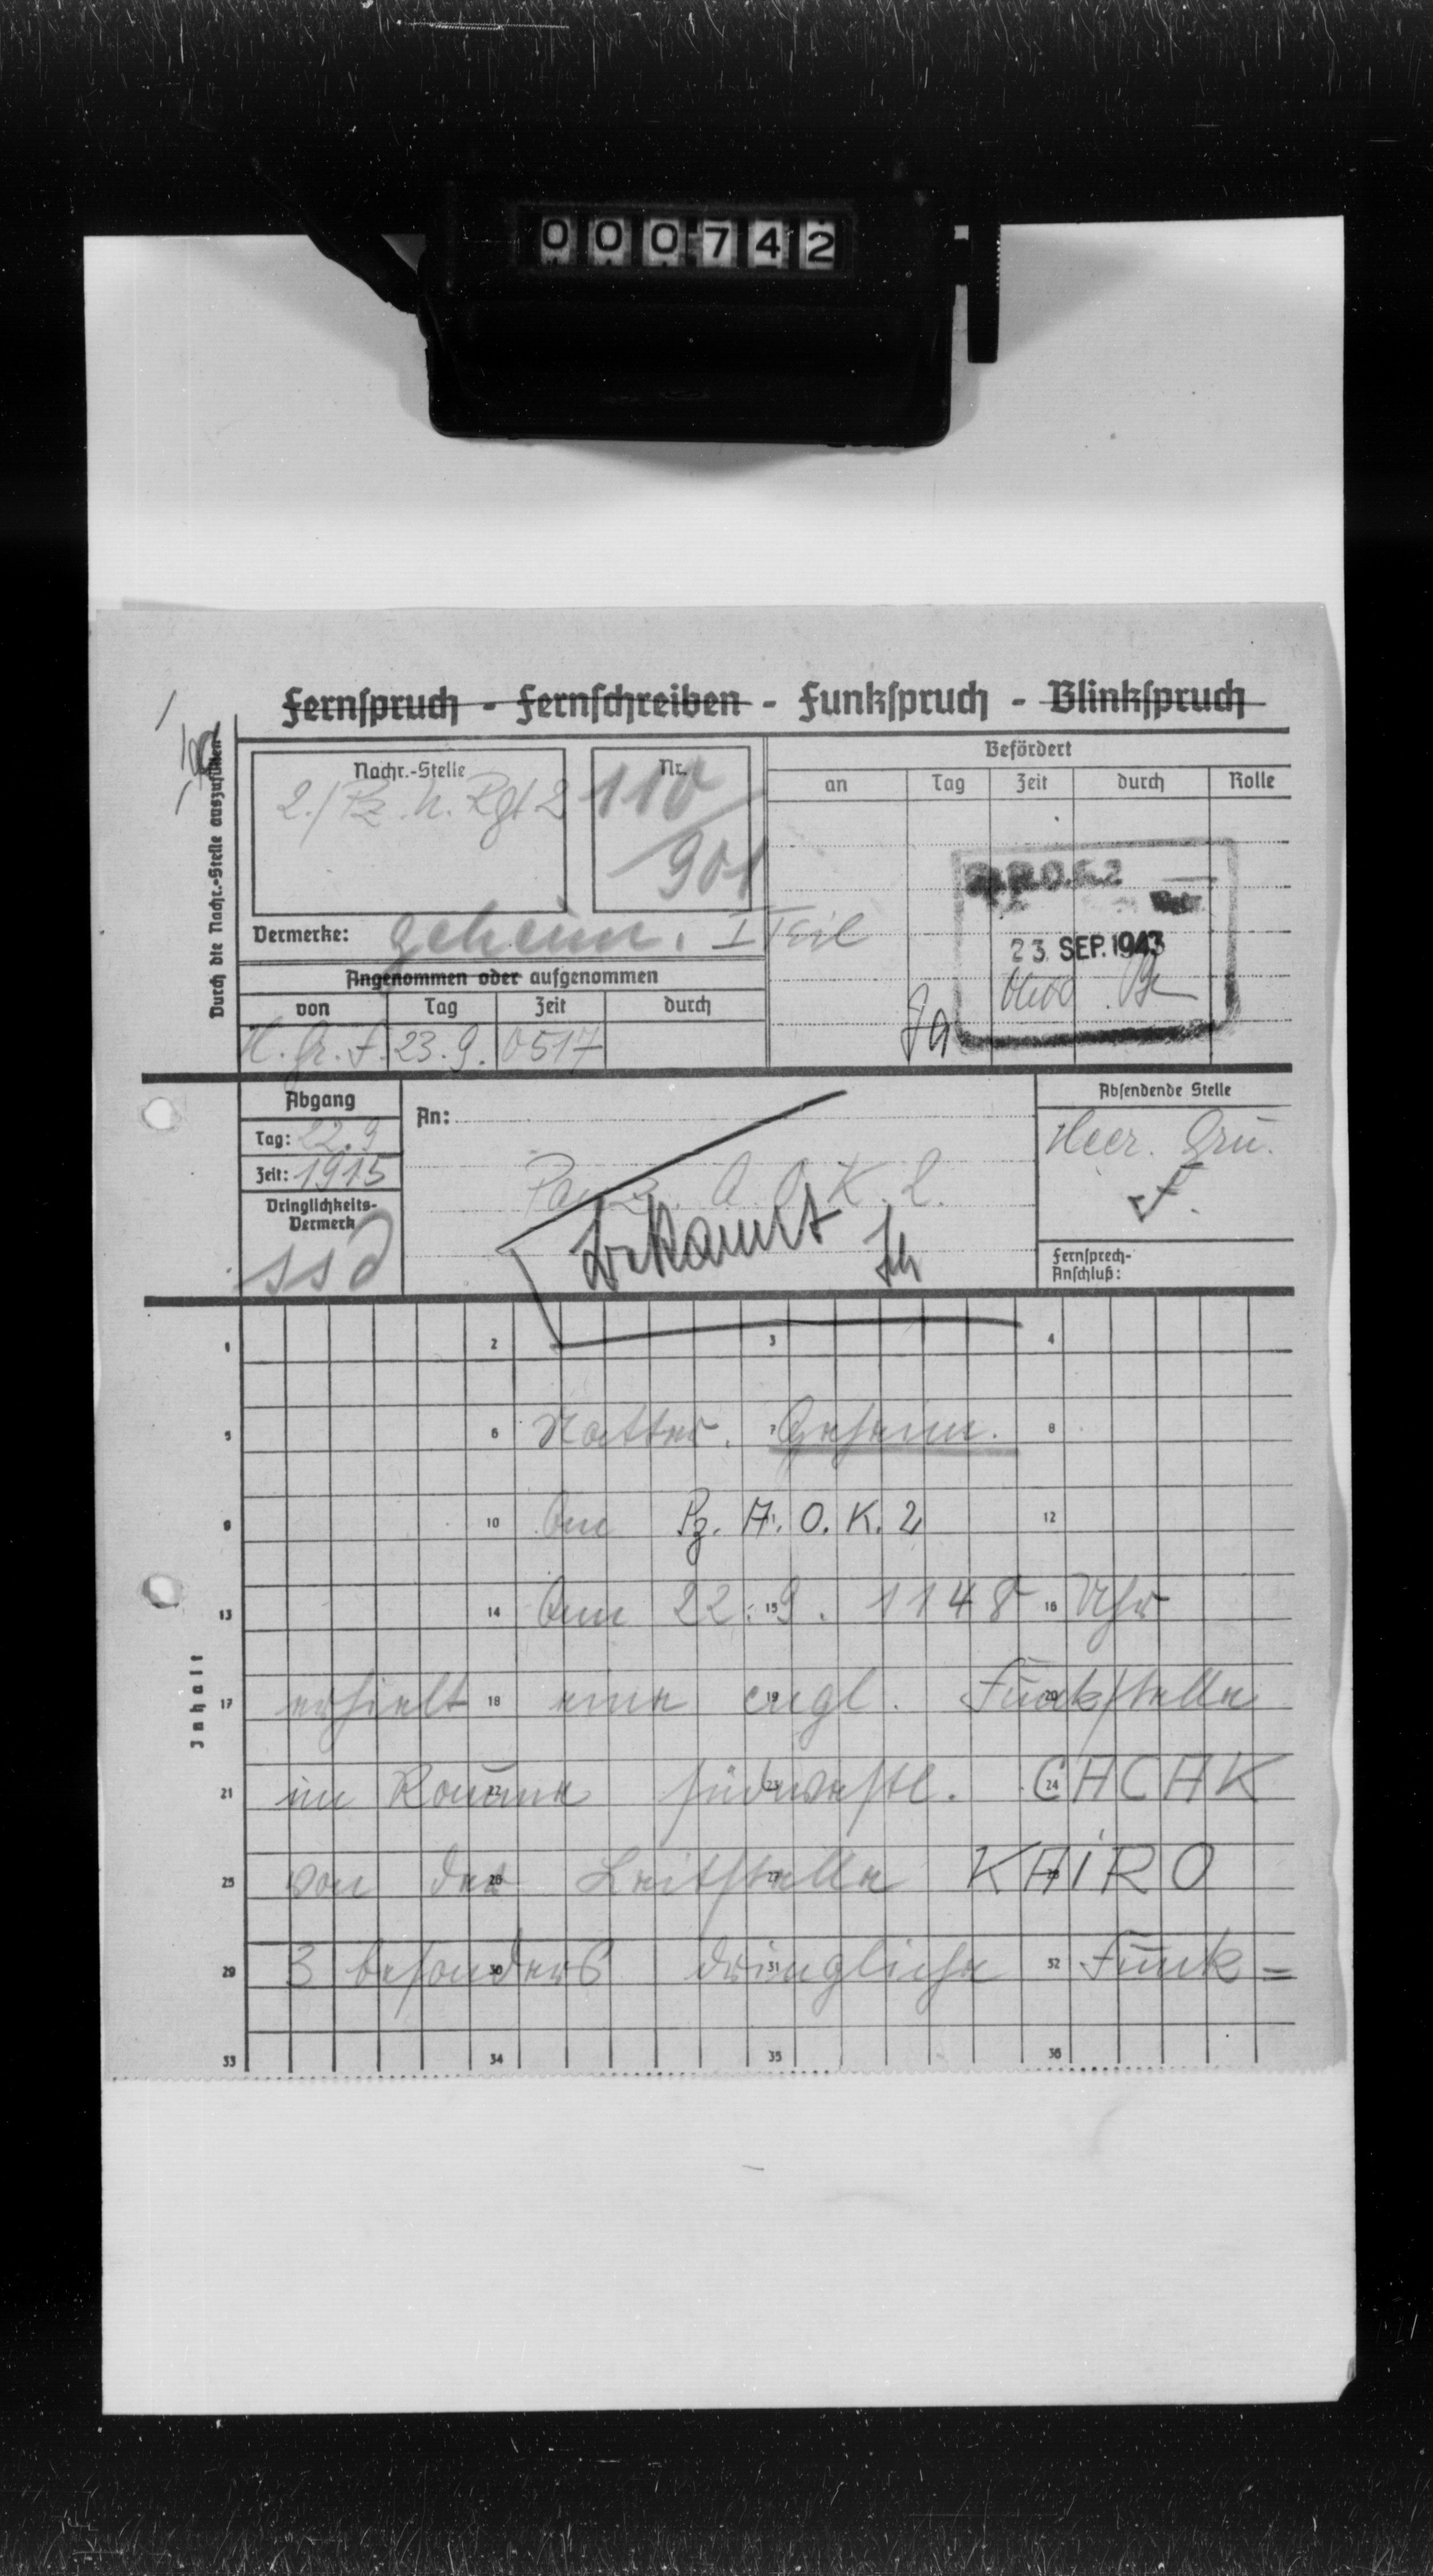 000742
Fernspruch - Fernschreiben - Funkspruch - Blinkspruch
Durch die Nachr.-Stelle auszufüllen
Nachr.-Stelle
2./Pz. N. Rgt 2
Nr.
110/901
Befördert
an Tag Zeit durch Rolle
Vermerke: geheim. I Teil
23. SEP. 1943
Angenommen oder aufgenommen
von Tag Zeit durch
H. Gr. F. 23.9. 0517
Ja
Abgang
Tag: 22.9
Zeit: 1915
Dringlichkeits-
Vermerk
ssd
An:
Panz. A.O.K. 2.
bekannt
Absendende Stelle
Heer. Gru.
F.
Fernsprech-
Anschluß:
Inhalt
1 2 3 4
5 6 7 8
Natter. Geheim.
9 10 12
An Pz. A. O. K. 2
13 14 15 16
Am 22.9. 1148 Uhr
17 18 19 20
erhielt eine engl. Funkstelle
21 22 23 24
im Raume südwestl. CHCHK
25 26 27 28
von der Leitstelle KAIRO
29 30 31 32
3 besonders dringliche Funk=
33 34 35 36